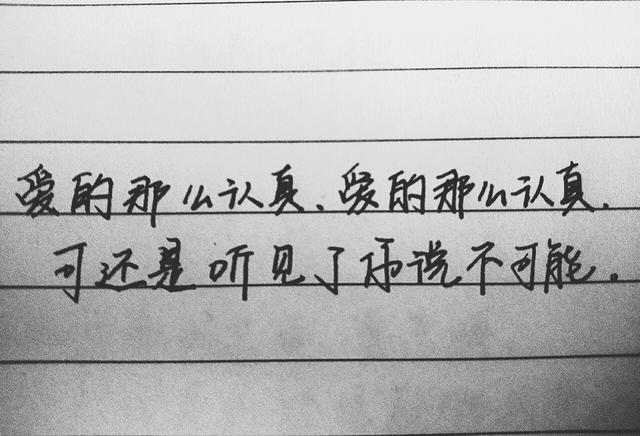 爱的那么认真.爱的那么认真.
可还是听见了你说不可能.